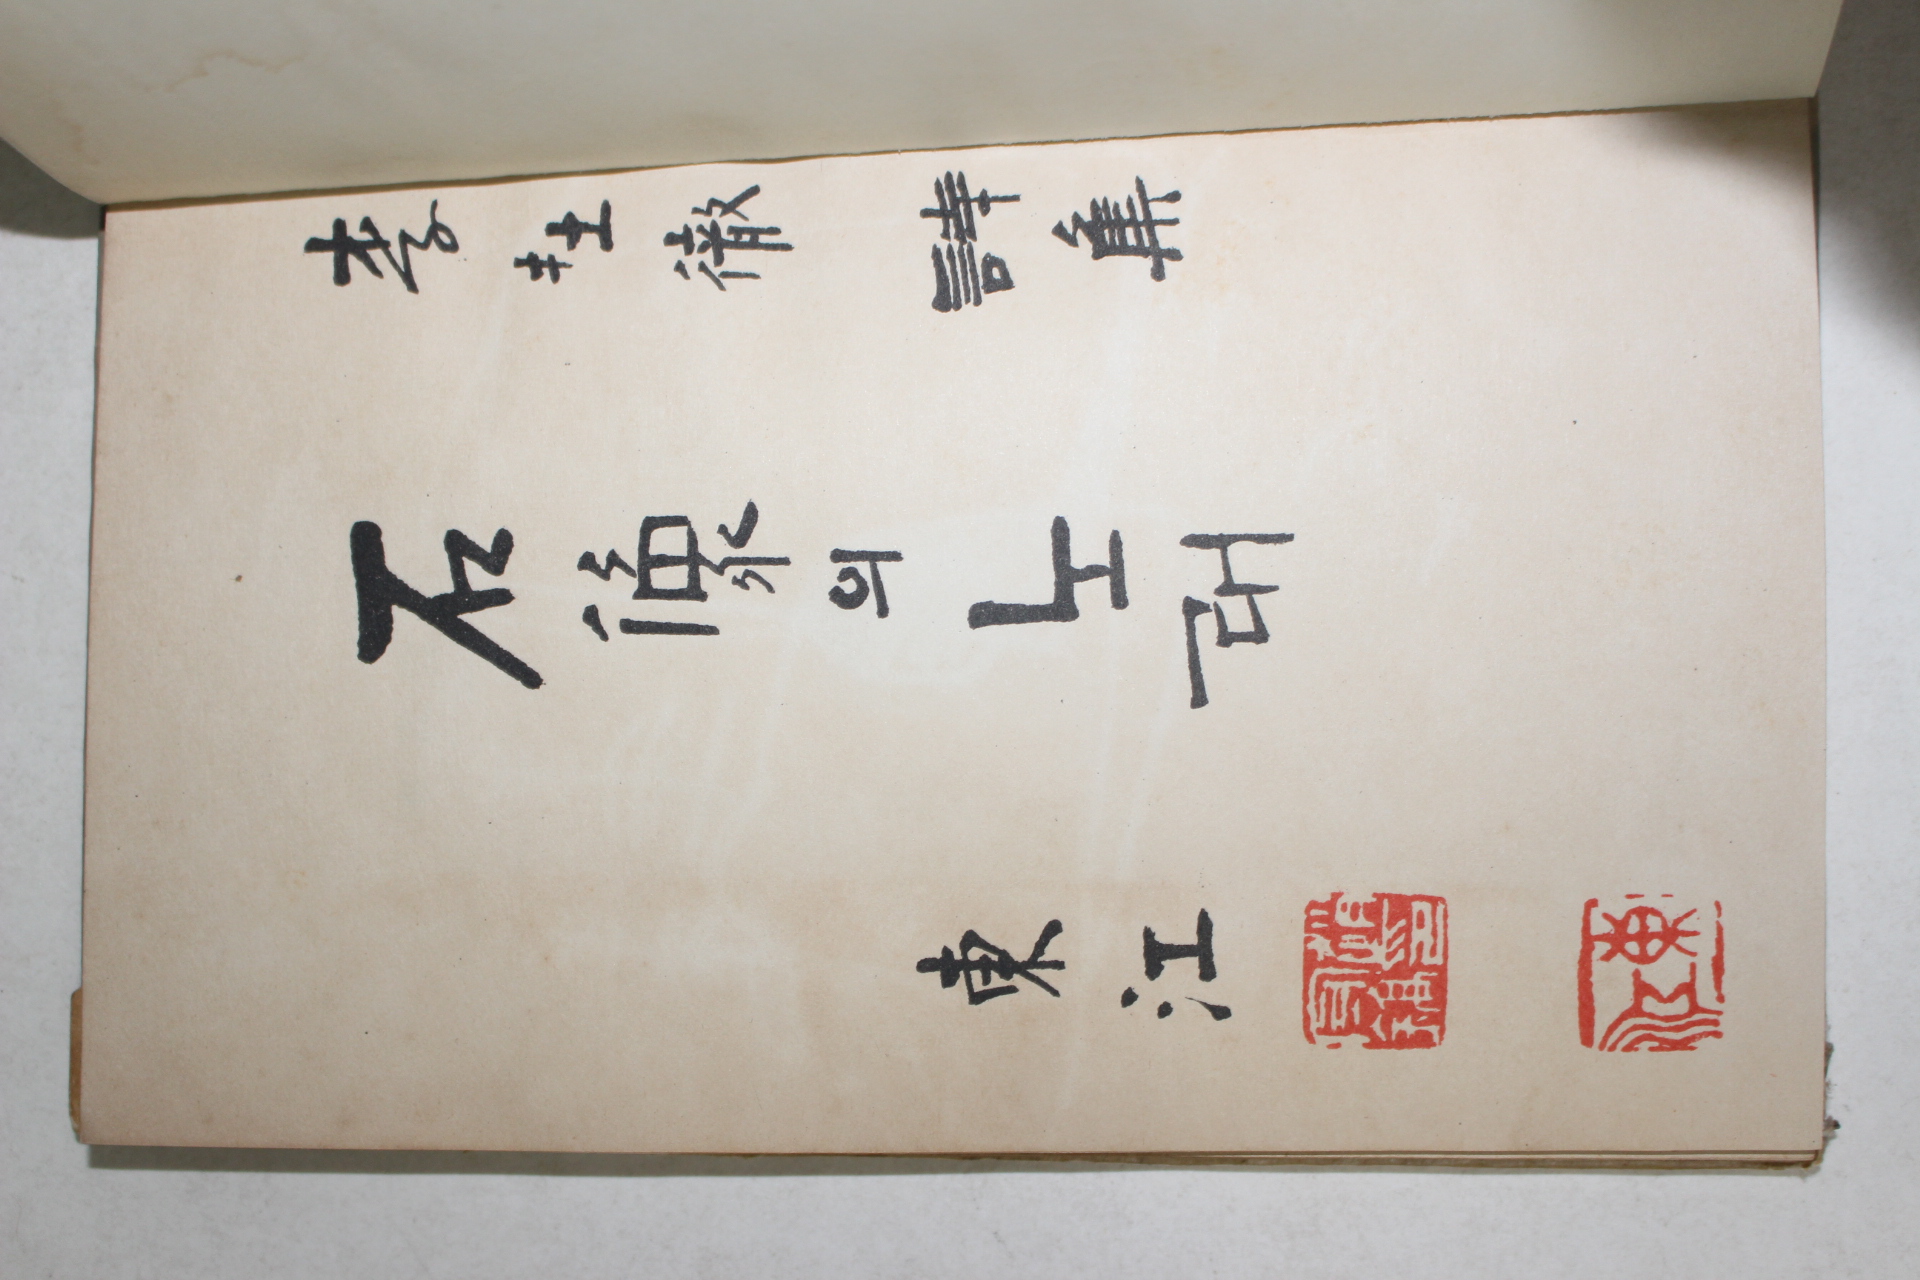 李杜徹 詩集
石像의 노래
東江
東江